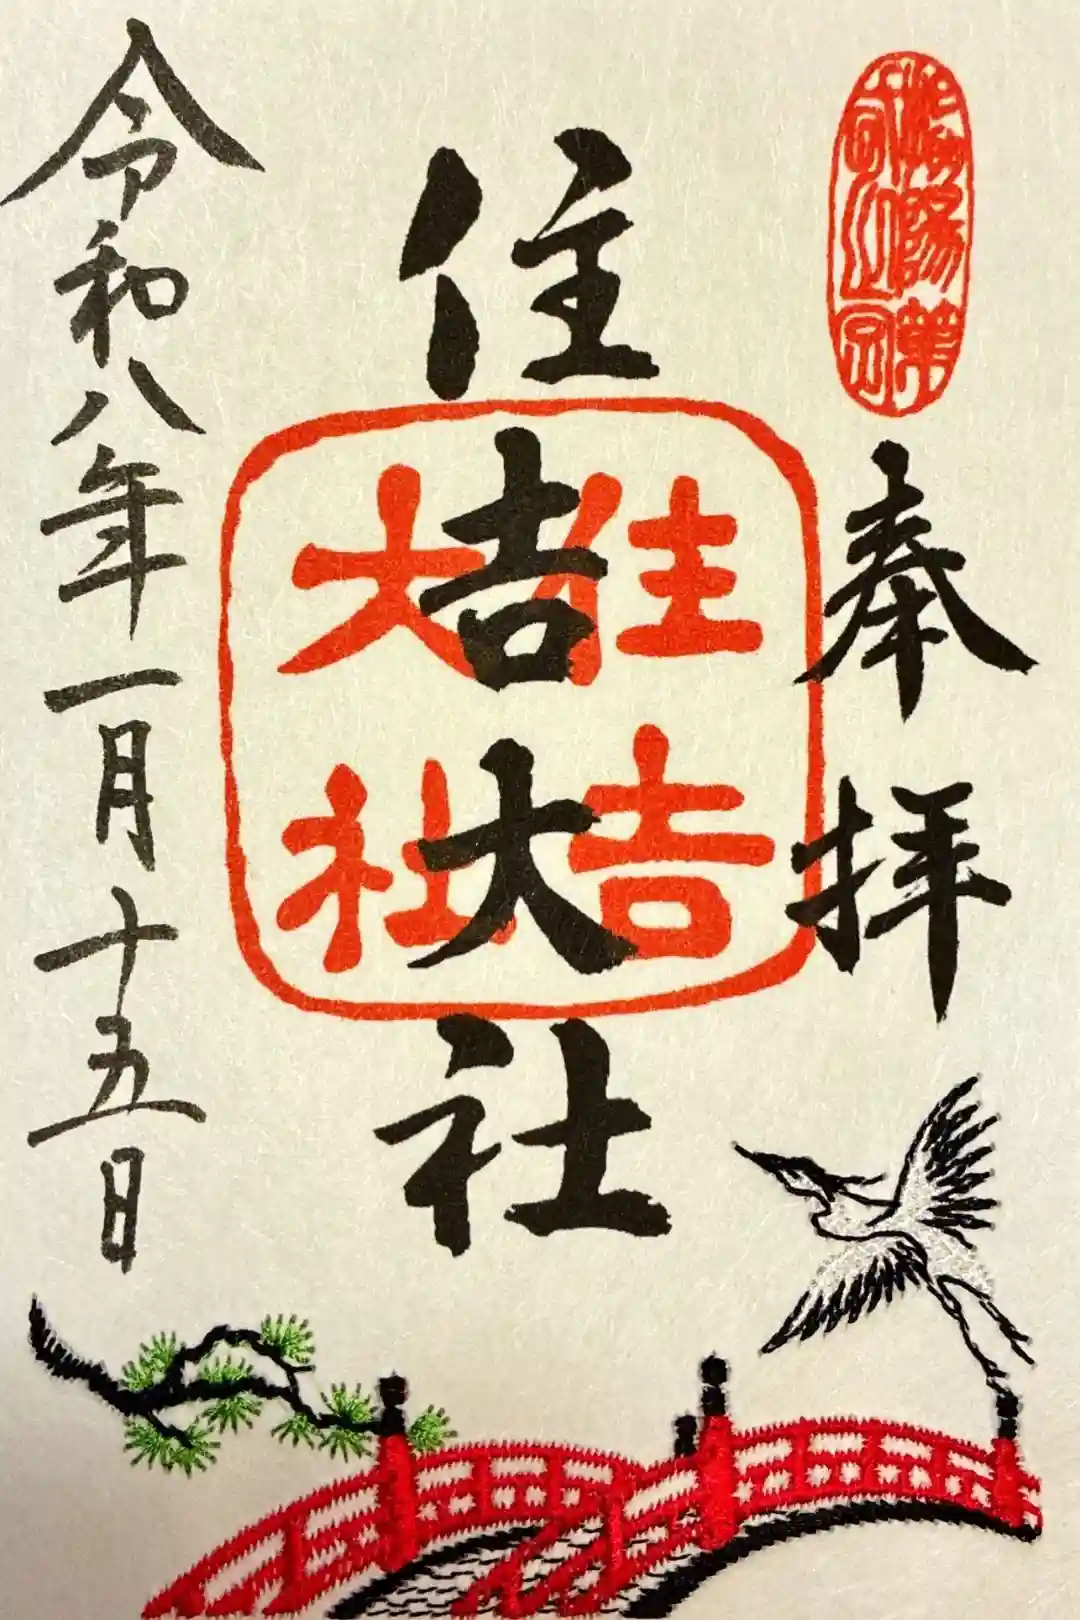 奉拝
住吉大社
住吉
大社
令和八年一月十五日